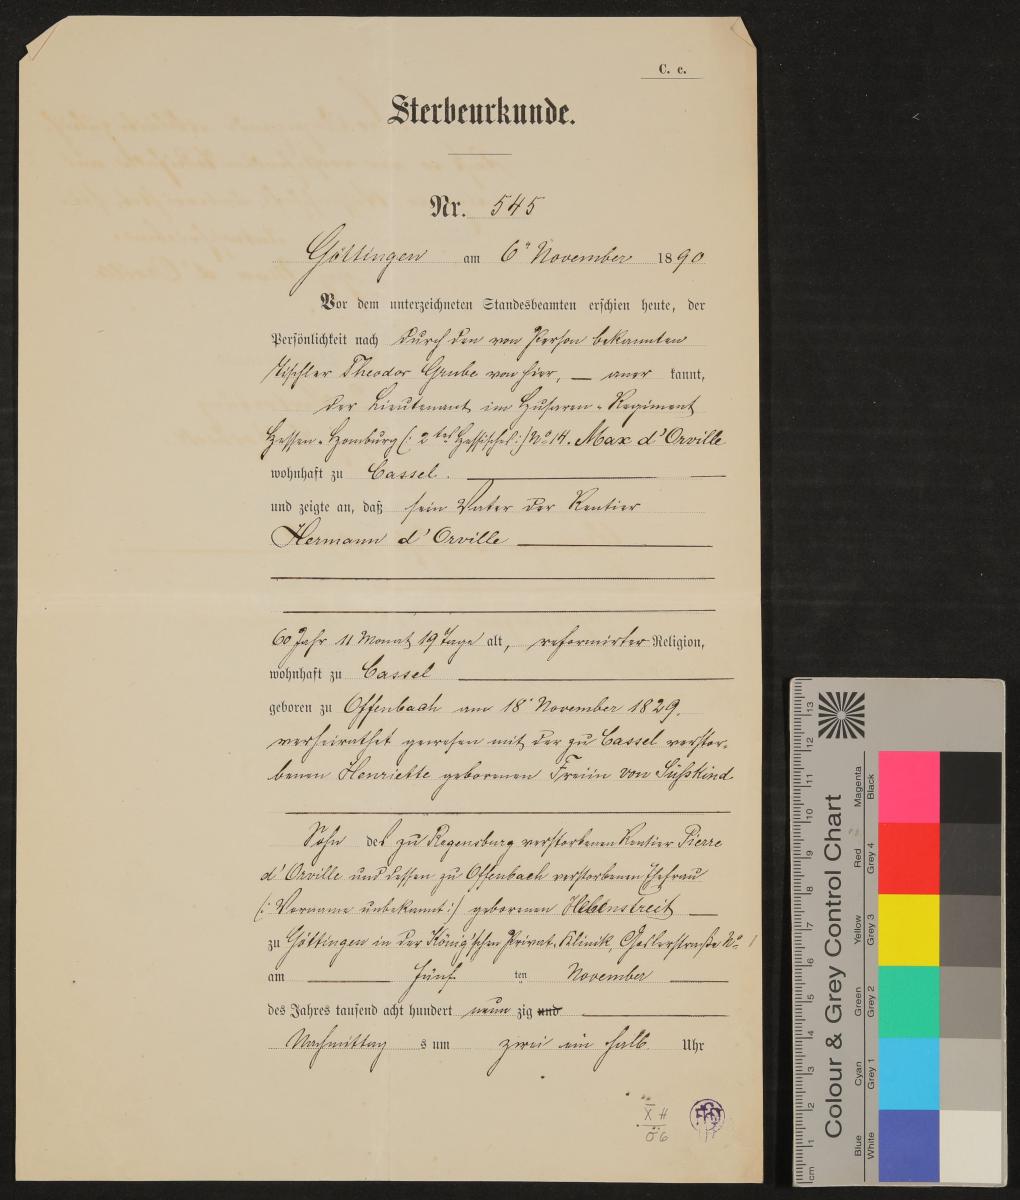 C. c.
Sterbeurkunde.
Nr. 545
Göttingen am 6ⁿ November 1890
Vor dem unterzeichneten Standesbeamten erschien heute, der
Persönlichkeit nach durch den von Person bekannten
Tischler Theodor Grube von hier, — aner kannt,
der Lieutenant im Husaren-Regiment
Hessen-Homburg (: 2tes Hessisches:) No 14. Max d'Orville
wohnhaft zu Cassel.
und zeigte an, daß sein Vater der Rentier
Hermann d'Orville
60 Jahr 11 Monat 19 Tage alt, reformirter Religion,
wohnhaft zu Cassel
geboren zu Offenbach am 18. November 1829.
verheirathet gewesen mit der zu Cassel verstor-
benen Henriette geborenen Freiin von Süßkind
Sohn des zu Regensburg verstorbenen Rentier Pierre
d'Orville und dessen zu Offenbach verstorbenen Ehefrau
(: Vorname unbekannt:) geborenen Hebenstreit —
zu Göttingen in der König'schen Privat-Klinik, Goslerstraße No 1
am fünf ten November
des Jahres tausend acht hundert neun zig und
Nachmittag s um zwei ein halb Uhr
X H
06
Colour & Grey Control Chart
Blue Cyan Green Yellow Red Magenta
White Grey 1 Grey 2 Grey 3 Grey 4 Black
cm 1 2 3 4 5 6 7 8 9 10 11 12 13